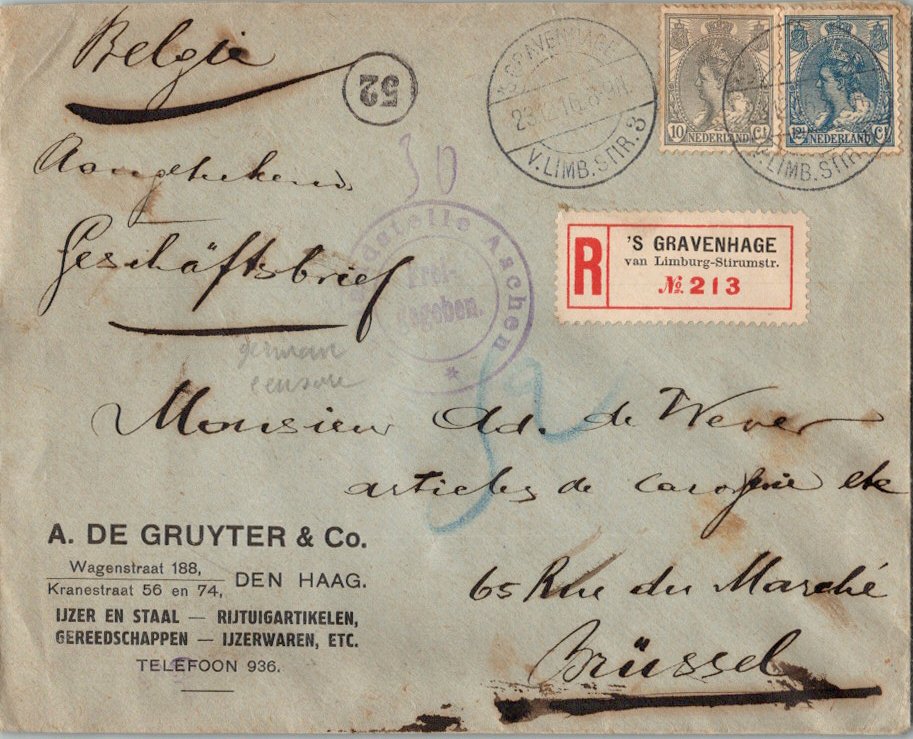 Belgie
52
'S GRAVENHAGE
23. 16.8-9N
V.LIMB.STIR.3
10 Ct
NEDERLAND
12½ Ct
NEDERLAND
V.LIMB.STIR.3
Aangetekend
30
Geschäftsbrief
Aachen
Frei-
gegeben.
R
'S GRAVENHAGE
van Limburg-Stirumstr.
№ 213
german
censure
Monsieur Ad. de Wever
articles de etc
65 Rue du Marché
Brüssel
A. DE GRUYTER & Co.
Wagenstraat 188,
Kranestraat 56 en 74, DEN HAAG.
IJZER EN STAAL — RIJTUIGARTIKELEN,
GEREEDSCHAPPEN — IJZERWAREN, ETC.
TELEFOON 936.